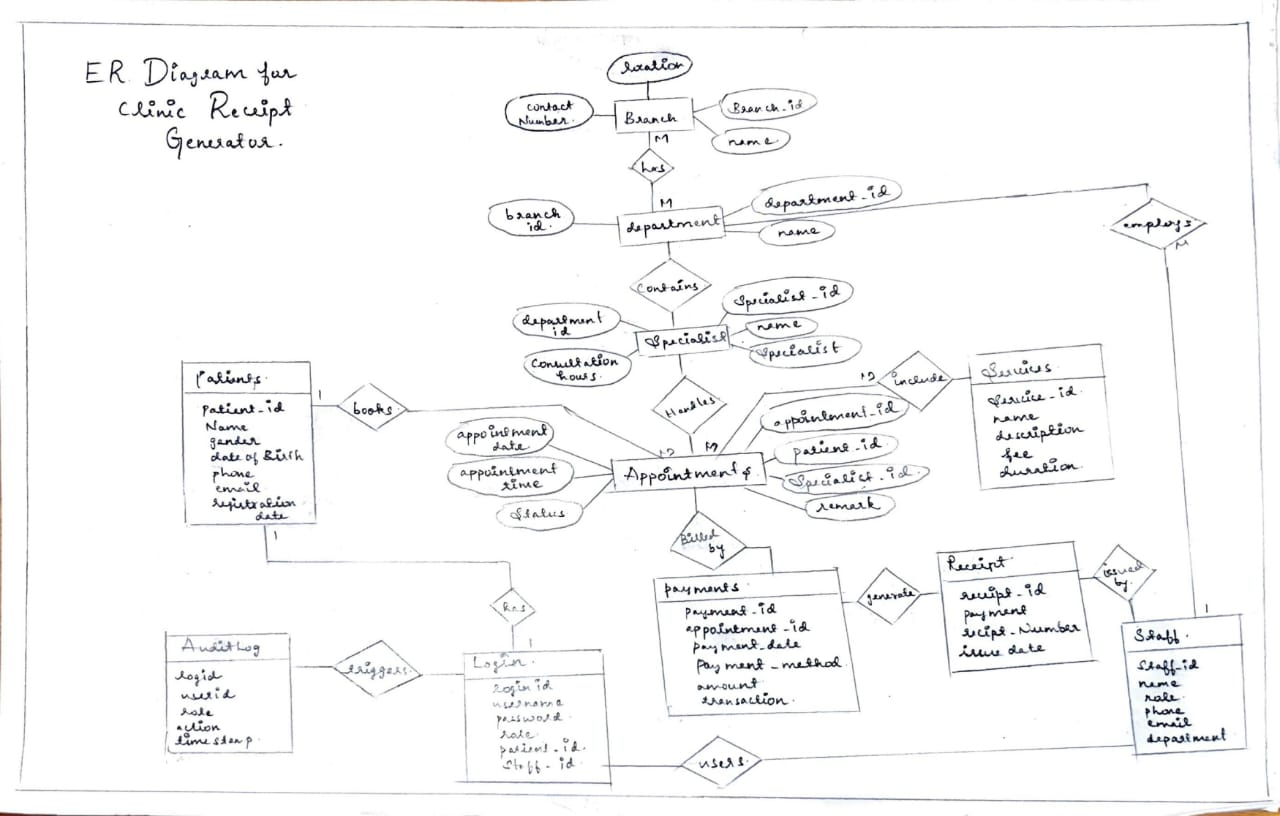 ER Diagram for
Clinic Receipt
Generator.
location
contact
Number.
Branch
Branch_id
name
M
has
M
branch
id.
department
department_id
name
employs
M
Contains
department
id
Consultation
hours.
Specialist
Specialist_id
name
Specialist
Handles
Patients.
Patient_id
Name
gender
date of Birth
phone
email
registration
date
1
books
M
include
Services
Service_id
name
description
fee
duration.
appointment
date.
appointment
time
Status
M
M
Appointments.
appointment_id
patient_id
Specialist_id.
remark
Billed
by
1
has
1
payments
payment_id
appointment_id
payment_date
payment_method.
amount
transaction.
generate
Receipt
receipt_id
payment
recipt_Number
issue date
issued
by.
1
Staff.
Staff_id
name
role.
phone
email
department
AuditLog
logid
userid
role
action
timestamp.
triggers.
Login.
login id
username
password.
role.
patient_id.
Staff_id.
users.